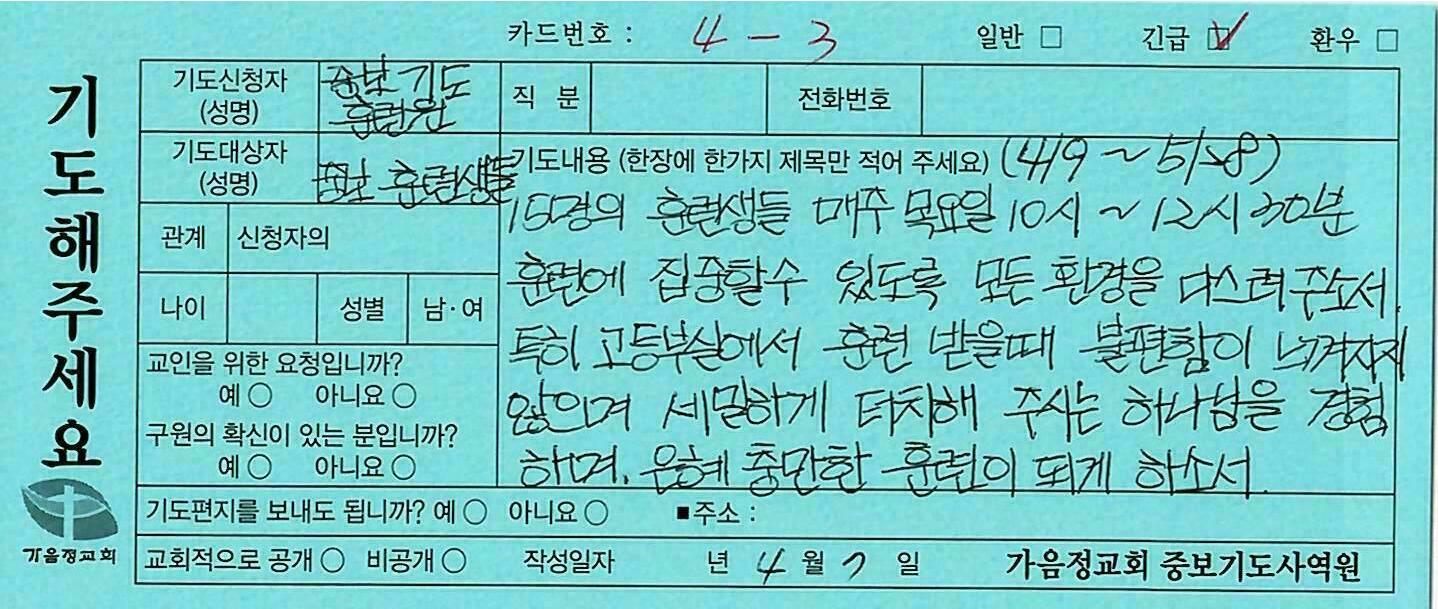 카드번호 : 4 - 3 일반 □ 긴급 ☑ 환우 □
기도해주세요
기도신청자 (성명) 중보기도 훈련원 직 분 전화번호
기도대상자 (성명) 중보 훈련생들
기도내용 (한장에 한가지 제목만 적어 주세요) (4/9 ~ 5/28)
150명의 훈련생들 매주 목요일 10시 ~ 12시 30분
훈련에 집중할수 있도록 모든 환경을 다스려주소서.
특히 고등부실에서 훈련 받을때 불편함이 느껴지지
않으며 세밀하게 터치해 주시는 하나님을 경험
하며. 은혜 충만한 훈련이 되게 하소서.
관계 신청자의
나이 성별 남·여
교인을 위한 요청입니까?
예 ○ 아니요 ○
구원의 확신이 있는 분입니까?
예 ○ 아니요 ○
기도편지를 보내도 됩니까? 예 ○ 아니요 ○ ■주소 :
교회적으로 공개 ○ 비공개 ○ 작성일자 년 4 월 7 일 가음정교회 중보기도사역원
가음정교회